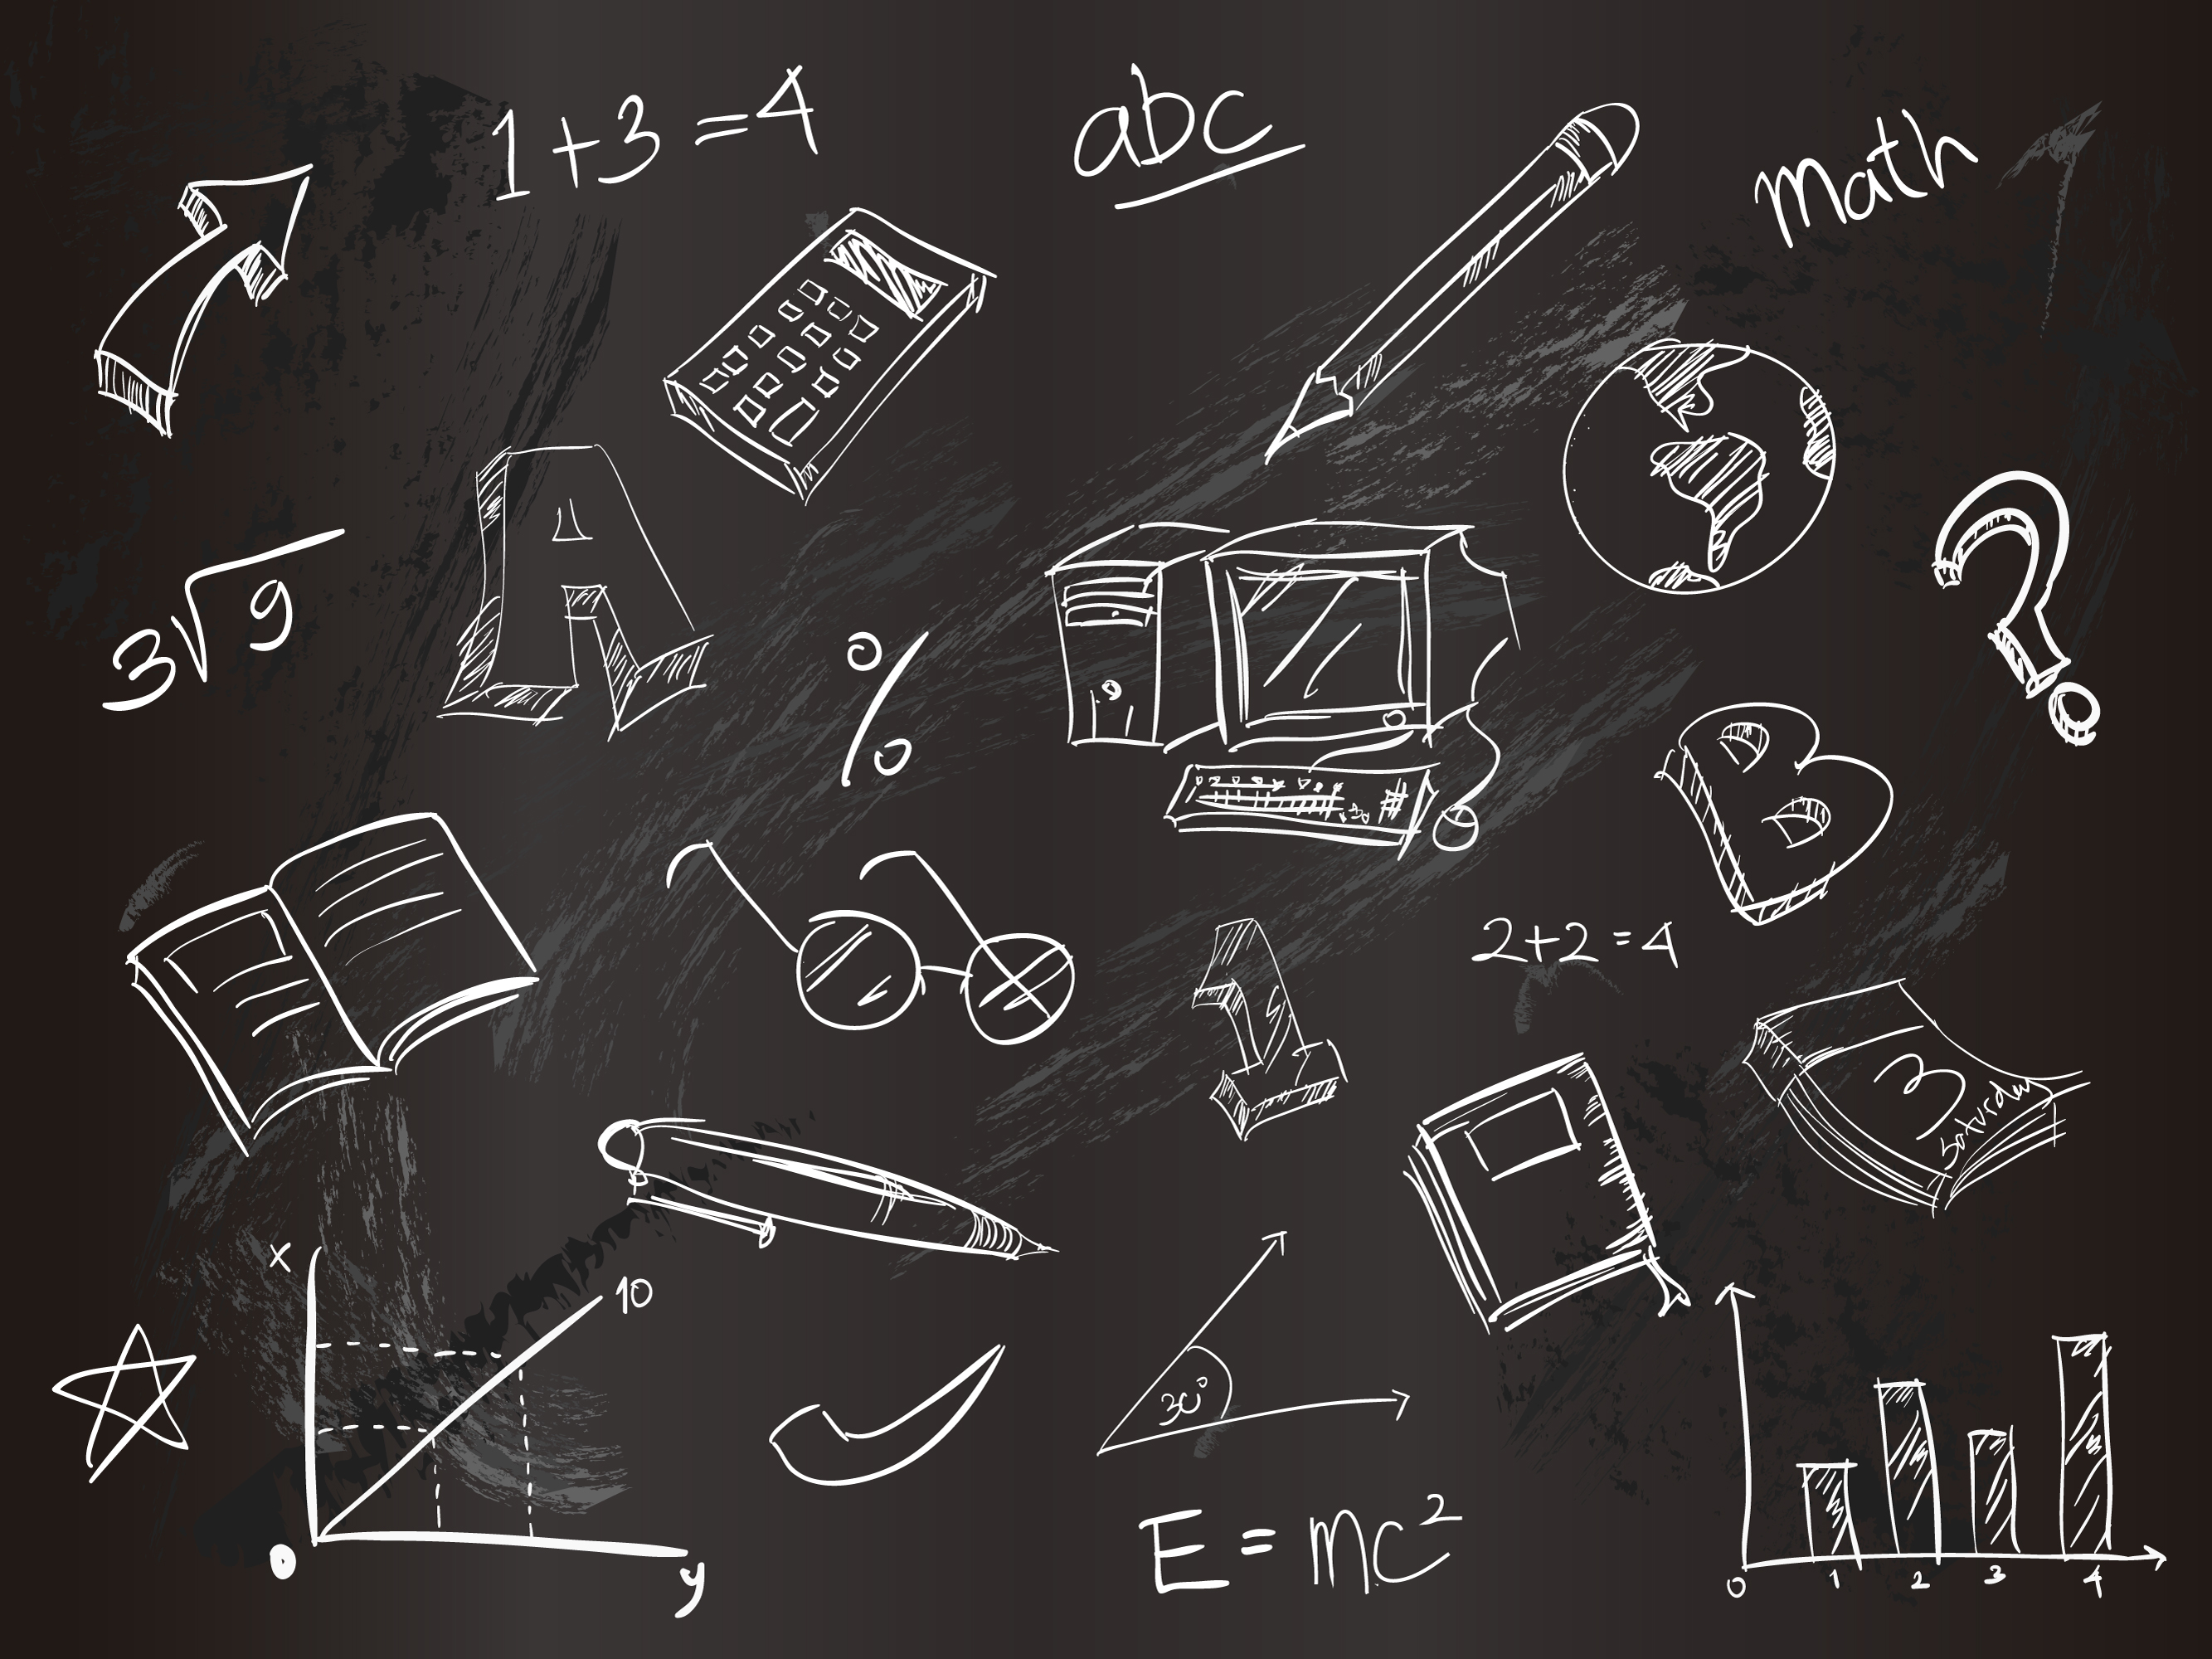 1+3=4
abc
math
3√9
A
%
?
B
1
2+2=4
3
Saturday
x
10
30°
0
y
E=mc²
0 1 2 3 4